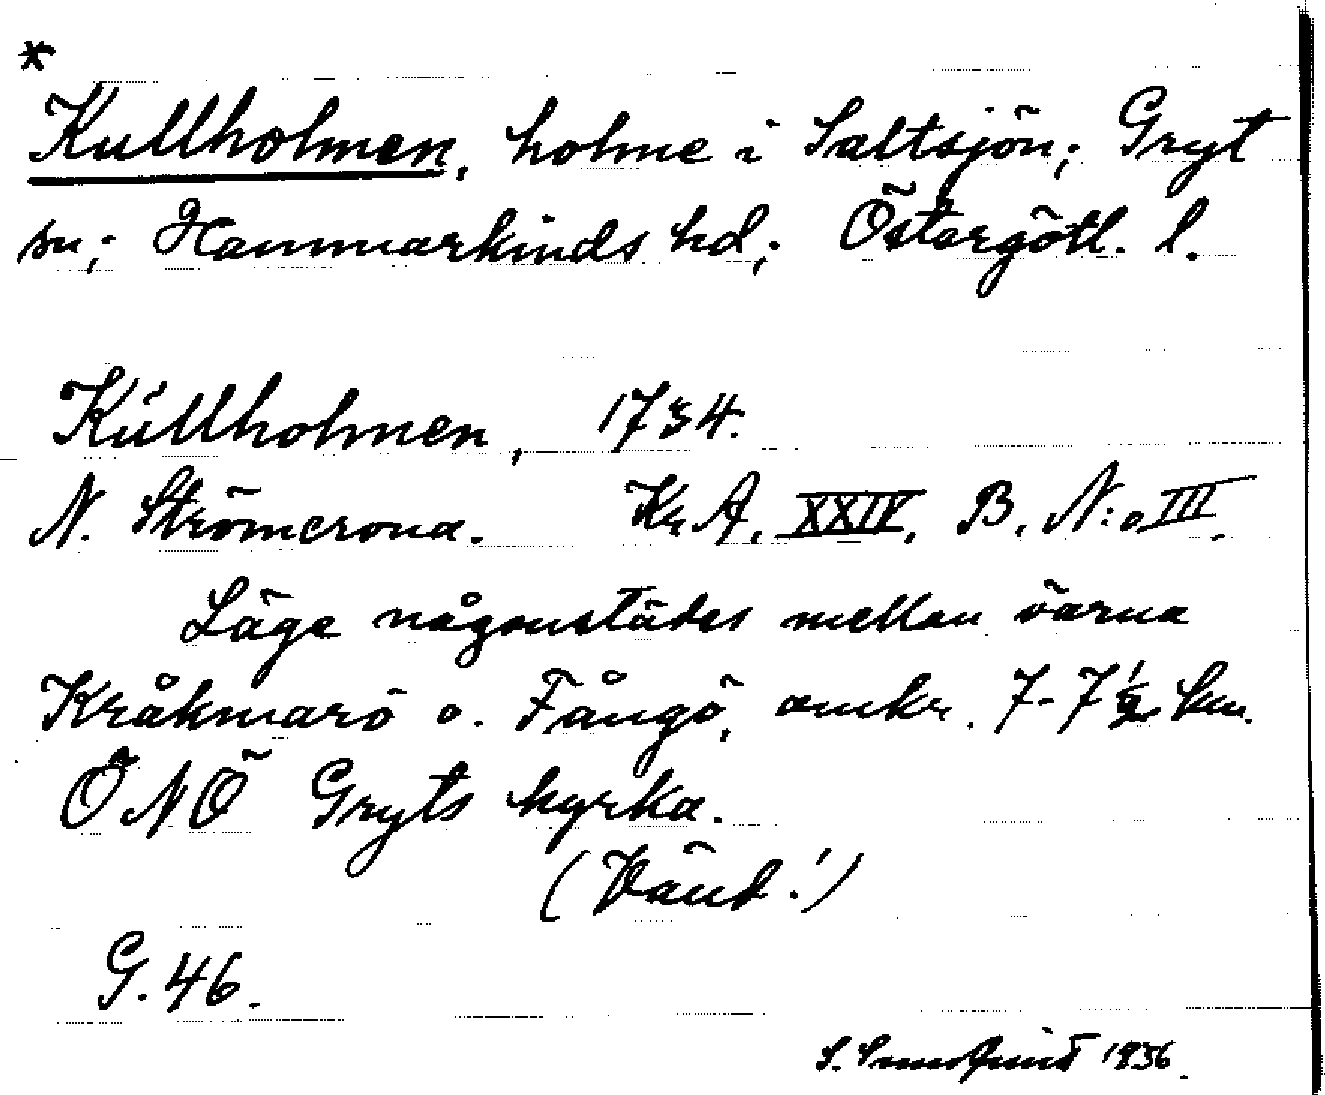 *
Kullholmen, holme i Saltsjön; Gryt
sn; Hammarkinds hd; Östergötl. l.
Kullholmen, 1734.
N. Strömcrona. Kr. A. XXIV. B. N:o III.
Läge någonstädes mellan öarna
Kråkmarö o. Fångö, omkr. 7-7½ km.
ÖNÖ Gryts kyrka.
(Vänd!)
G. 46.
S. 1936.